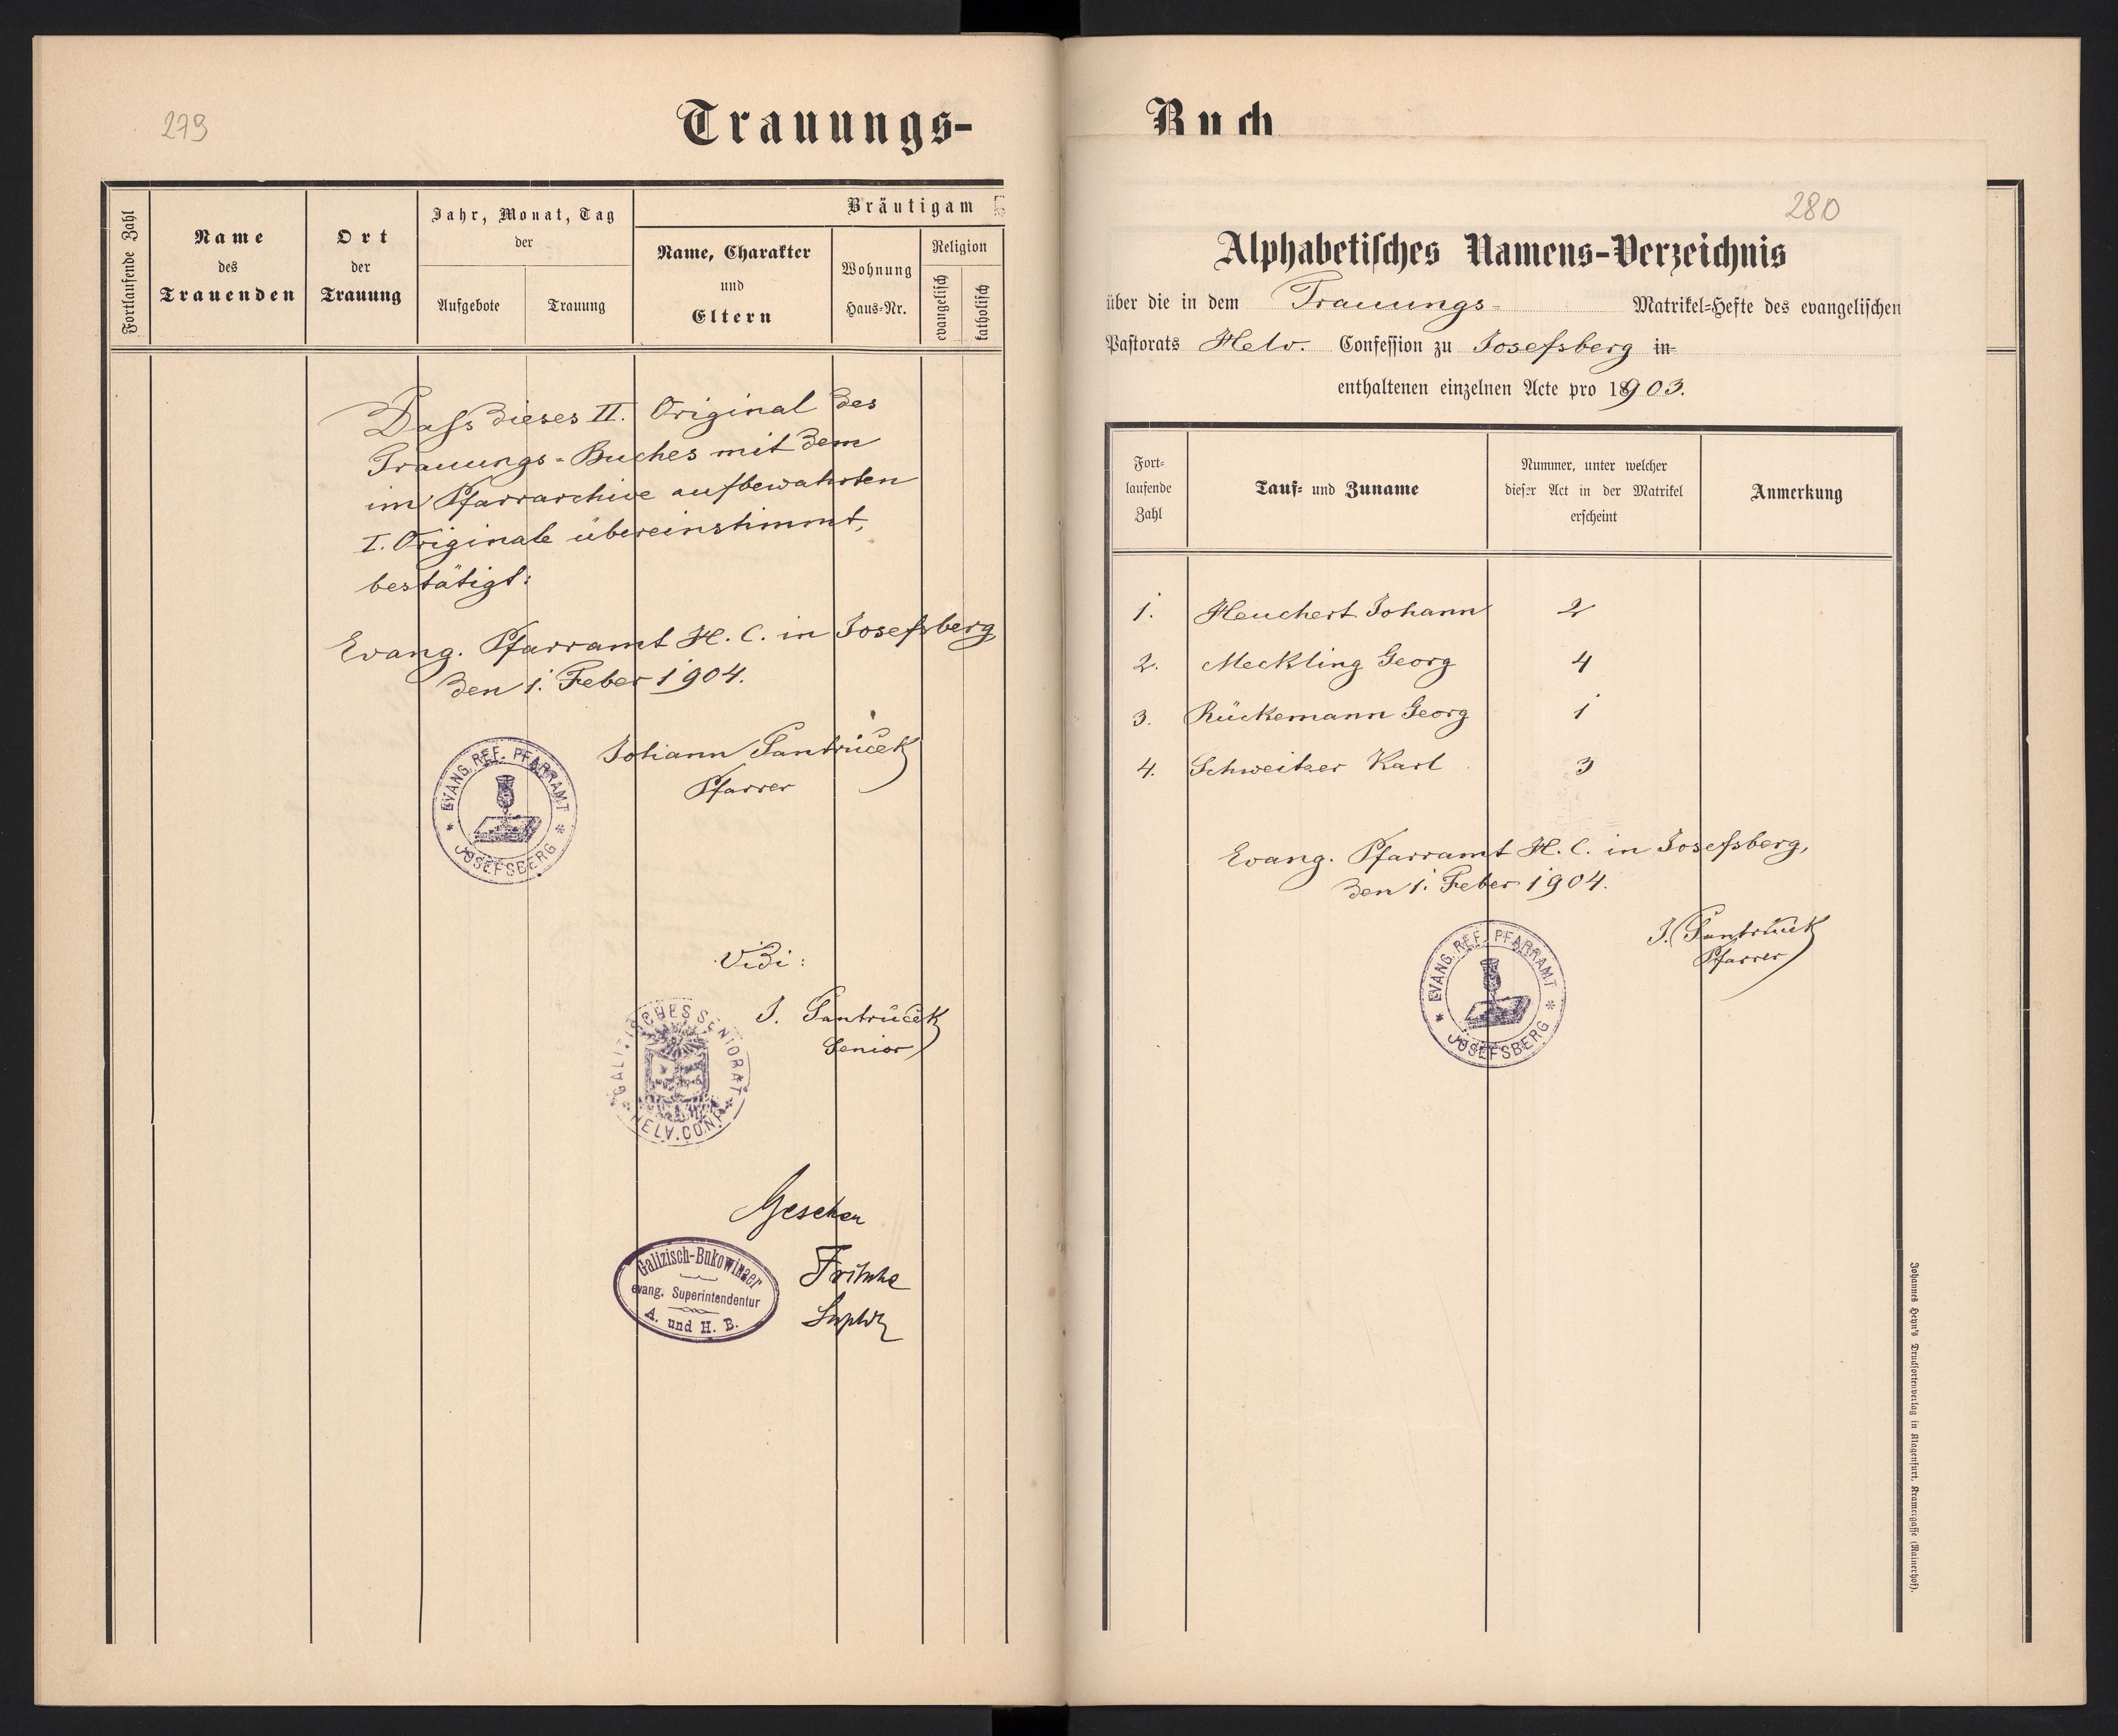 279
Trauungs-
Fortlaufende Zahl
Name
des
Trauenden
Ort
der
Trauung
Jahr, Monat, Tag
der
Aufgebote
Trauung
Bräutigam
Name, Charakter
und
Eltern
Wohnung
Haus-Nr.
Religion
evangelisch
katholisch
Dass dieses II. Original des
Trauungs-Buches mit dem
im Pfarrarchive aufbewahrten
I. Originale übereinstimmt,
bestätigt:
Evang. Pfarramt H. C. in Josefsberg
den 1. Feber 1904.
EVANG. REF. PFARRAMT
* JOSEFSBERG *
Johann Pantrůček
Pfarrer
Vidi:
J. Pantrůček
Senior
GALIZISCHES SENIORAT
HELV. CONF.
Gesehen
Galizisch-Bukowinaer
evang. Superintendentur
A. und H. B.
Fritsche
Buch
280
Alphabetisches Namens-Verzeichnis
über die in dem Trauungs- Matrikel-Hefte des evangelischen
Pastorats Helv. Confession zu Josefsberg in
enthaltenen einzelnen Acte pro 1903.
Fort-
laufende
Zahl
Tauf- und Zuname
Nummer, unter welcher
dieser Act in der Matrikel
erscheint
Anmerkung
1. Heuchert Johann 2
2. Meckling Georg 4
3. Rückemann Georg 1
4. Schweitzer Karl 3
Evang. Pfarramt H. C. in Josefsberg,
den 1. Feber 1904.
J. Pantrůček
Pfarrer
EVANG. REF. PFARRAMT
* JOSEFSBERG *
Johannes Heyn's Drucksortenverlag in Klagenfurt, Kramergasse (Rainerhof).